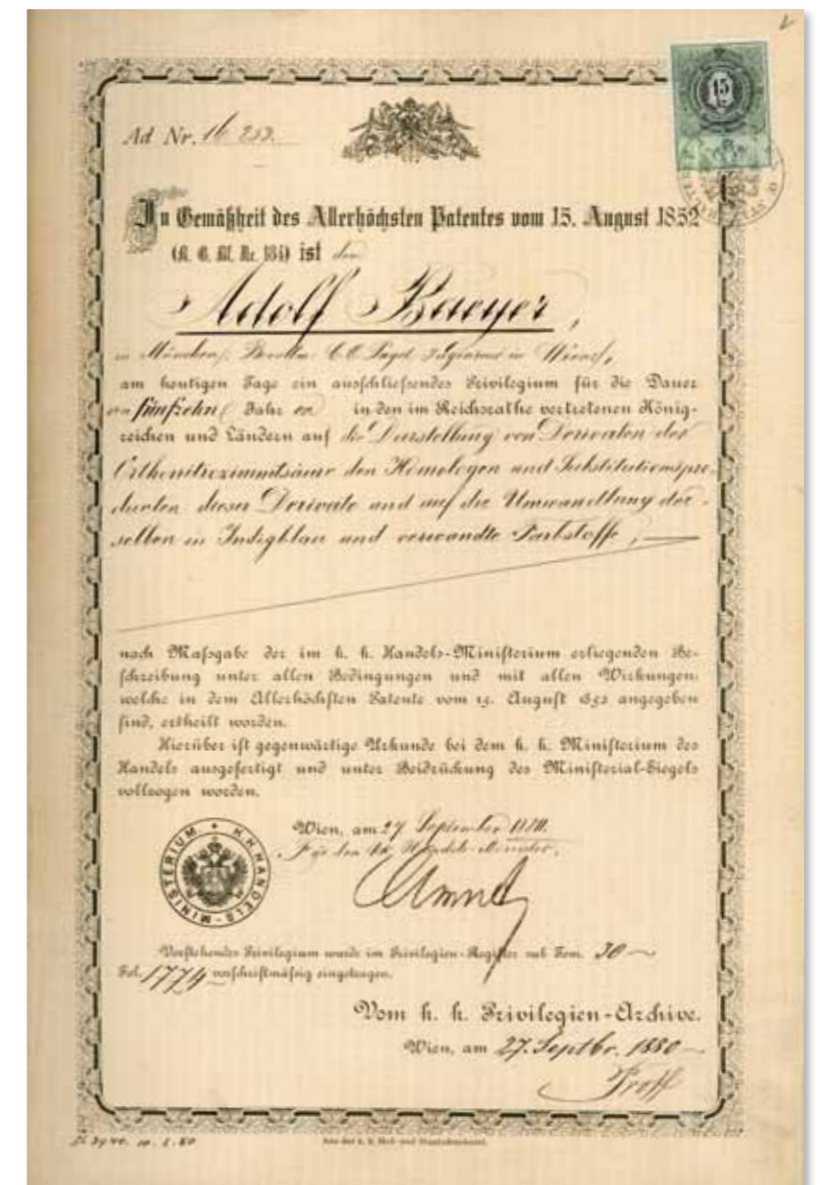 15
Ad Nr. 16 253.
In Gemäßheit des Allerhöchsten Patentes vom 15. August 1852
(R. G. Bl. Nr. 184) ist dem
Adolf Baeyer,
in München,
am heutigen Tage ein ausschliessendes Privilegium für die Dauer
von fünfzehn Jahr en in den im Reichsrathe vertretenen König-
reichen und Ländern auf die Darstellung von Derivaten der
Orthonitrozimmtsäure den Homologen und Substitutionspro-
ducten dieser Derivate und auf die Umwandlung der-
selben in Indigblau und verwandte Farbstoffe,
nach Massgabe der im k. k. Handels-Ministerium erliegenden Be-
schreibung unter allen Bedingungen und mit allen Wirkungen,
welche in dem Allerhöchsten Patente vom 15. August 1852 angegeben
sind, ertheilt worden.
Hierüber ist gegenwärtige Urkunde bei dem k. k. Ministerium des
Handels ausgefertigt und unter Beidrückung des Ministerial-Siegels
vollzogen worden.
Wien, am 27 September 1880.
Für den k.k. Handels-Minister.
K. K. HANDELS-MINISTERIUM
Vorstehendes Privilegium wurde im Privilegien-Register sub Tom. 30
Fol. 1774 vorschriftmässig eingetragen.
Vom k. k. Privilegien-Archive.
Wien, am 27. Septbr. 1880
Aus der k. k. Hof- und Staatsdruckerei.